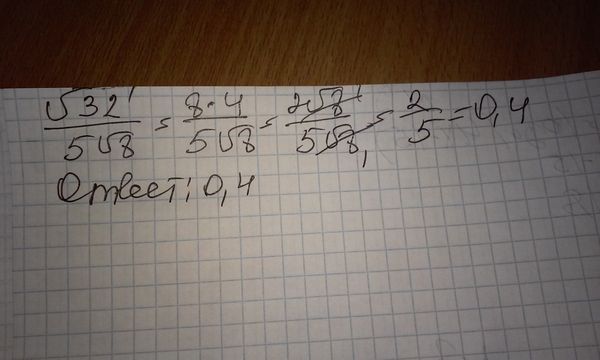 √32/5√8 = 8·4/5√8 = 2√8/5√8 = 2/5 = 0,4
Ответ: 0,4